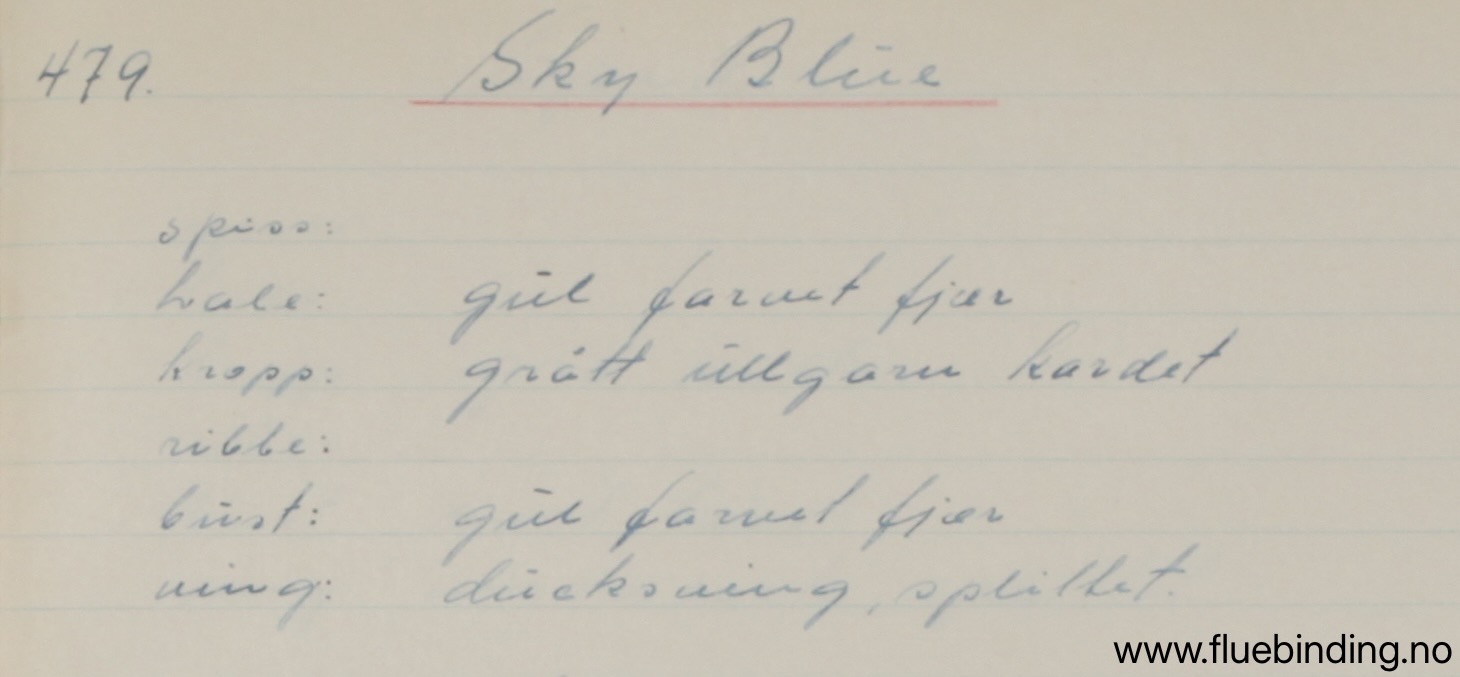 479. Sky Blue
spiss:
hale: gul farvet fjær
kropp: grått ullgarn kardet
ribbe:
bust: gul farvet fjær
ving: ducksving, splittet.
www.fluebinding.no